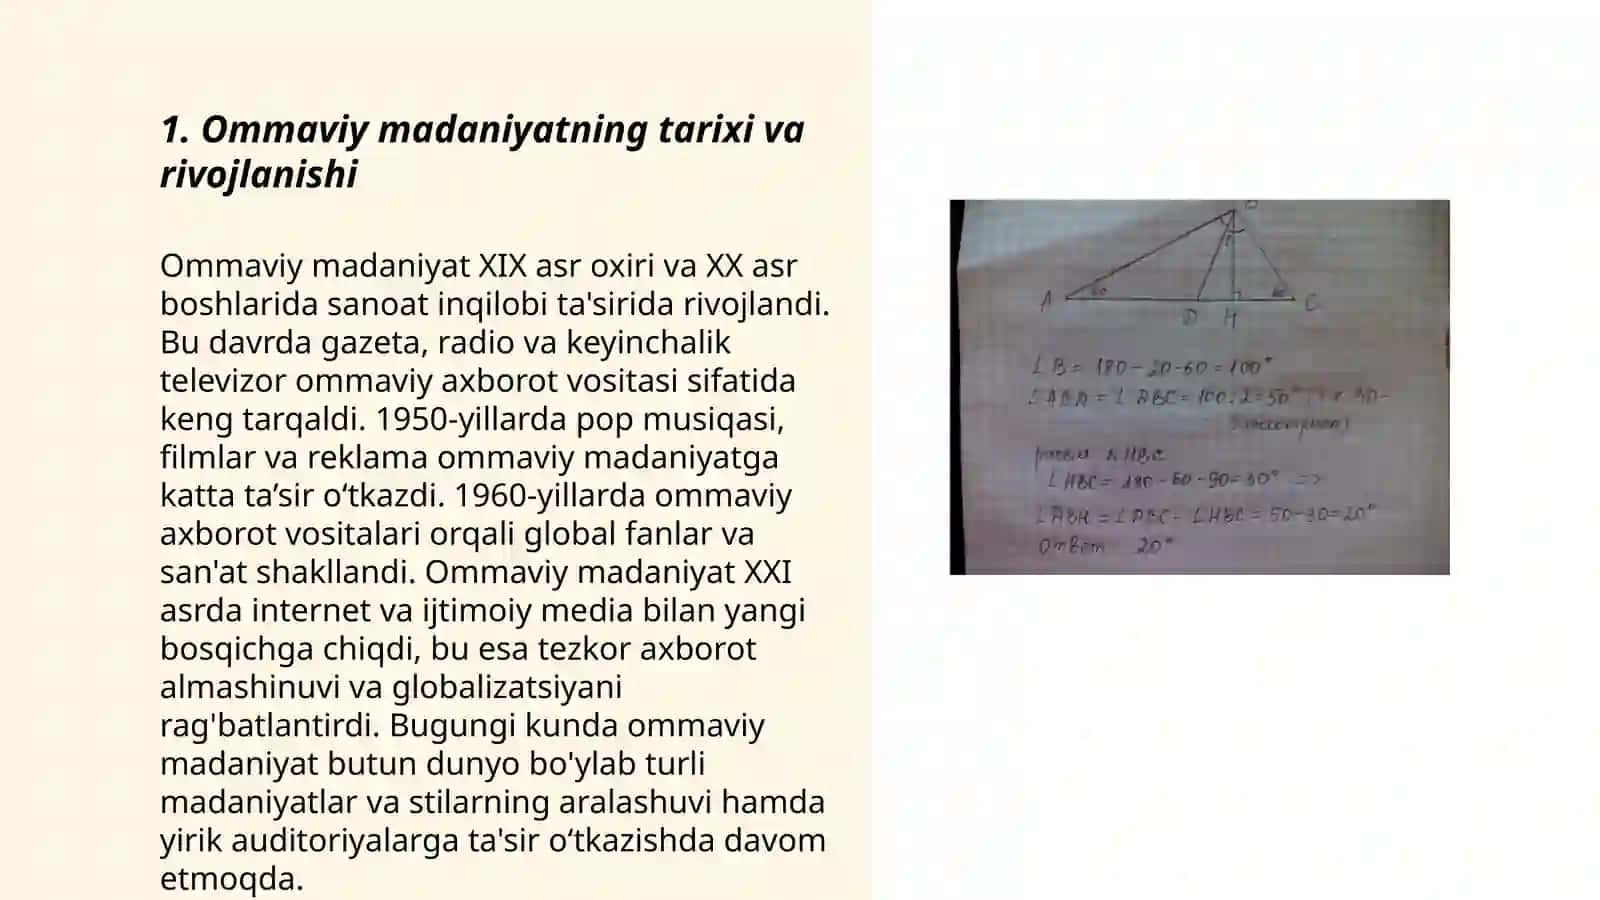 1. Ommaviy madaniyatning tarixi va
rivojlanishi
Ommaviy madaniyat XIX asr oxiri va XX asr
boshlarida sanoat inqilobi ta'sirida rivojlandi.
Bu davrda gazeta, radio va keyinchalik
televizor ommaviy axborot vositasi sifatida
keng tarqaldi. 1950-yillarda pop musiqasi,
filmlar va reklama ommaviy madaniyatga
katta ta’sir o‘tkazdi. 1960-yillarda ommaviy
axborot vositalari orqali global fanlar va
san'at shakllandi. Ommaviy madaniyat XXI
asrda internet va ijtimoiy media bilan yangi
bosqichga chiqdi, bu esa tezkor axborot
almashinuvi va globalizatsiyani
rag'batlantirdi. Bugungi kunda ommaviy
madaniyat butun dunyo bo'ylab turli
madaniyatlar va stilarning aralashuvi hamda
yirik auditoriyalarga ta'sir o‘tkazishda davom
etmoqda.
A
D H
C
∠B = 180 - 20 - 60 = 100°
= 100:2 = 50°
△HBC
∠HBC = 180 - 60 - 90 = 30° =>
∠ABH = ∠ABC - ∠HBC = 50 - 30 = 20°
Ответ 20°